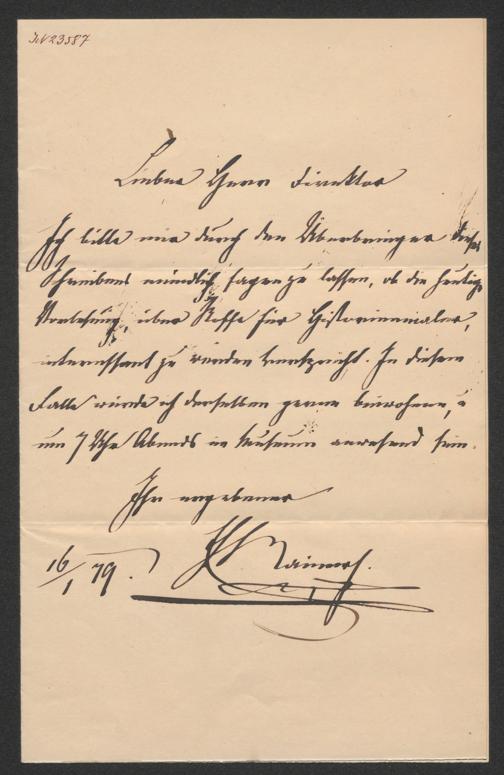 IN 23587
Lieber Herr Direktor
Ich bitte mir durch den Überbringer dieses
Schreibens mündlich sagen zu lassen, ob die heutige
Vorlesung, über Stoffe für Historienmaler,
interessant zu werden verspricht. In diesem
Falle würde ich derselben gerne beiwohnen, u
um 7 Uhr Abends im Museum anwesend sein.
Ihr ergebener
16/1 79.